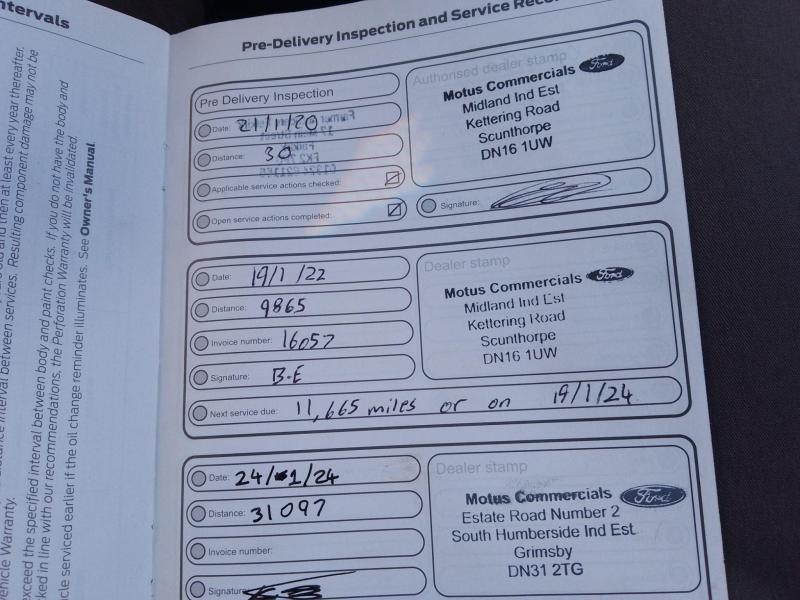 ntervals
years old and then at least every year thereafter.
distance interval between services. Resulting component damage may not be
Vehicle Warranty.
exceed the specified interval between body and paint checks. If you do not have the body and
ked in line with our recommendations, the Perforation Warranty will be invalidated.
icle serviced earlier if the oil change reminder illuminates. See Owner's Manual.
Pre-Delivery Inspection and Service Reco
Pre Delivery Inspection
Date: 21/11/20
Distance: 30
Applicable service actions checked:
Open service actions completed:
Authorised dealer stamp
Motus Commercials Ford
Midland Ind Est
Kettering Road
Scunthorpe
DN16 1UW
Signature:
Date: 19/1/22
Distance: 9865
Invoice number: 16057
Signature: B.E
Next service due: 11,665 miles or on 19/1/24
Dealer stamp
Motus Commercials Ford
Midland Ind Est
Kettering Road
Scunthorpe
DN16 1UW
Date: 24/1/24
Distance: 31097
Invoice number:
Signatur
Dealer stamp
Motus Commercials Ford
Estate Road Number 2
South Humberside Ind Est
Grimsby
DN31 2TG